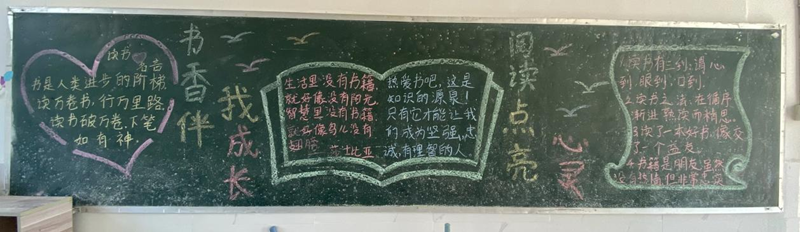 读书
名言
书是人类进步的阶梯
读万卷书,行万里路
读书破万卷,下笔
如有神.
书香伴
我成长
生活里没有书籍,
就好像没有阳光,
智慧里没有书籍,
就好像鸟儿没有
翅膀 莎士比亚
热爱书吧,这是
知识的源泉!
只有它才能让我
们成为坚强,忠
诚,有理智的人
阅读点亮
心灵
1.读书有三到:道心
到 眼到,口到.
2.读书之法,在循序
渐进 熟读而精思
3.读了一本好书,像交
了一个益友.
4.书籍是朋友 虽然
没有热情但非常忠实